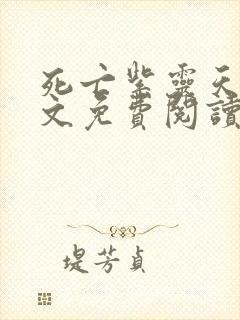 死亡紫靈天
文免費閱讀
堤芳貞